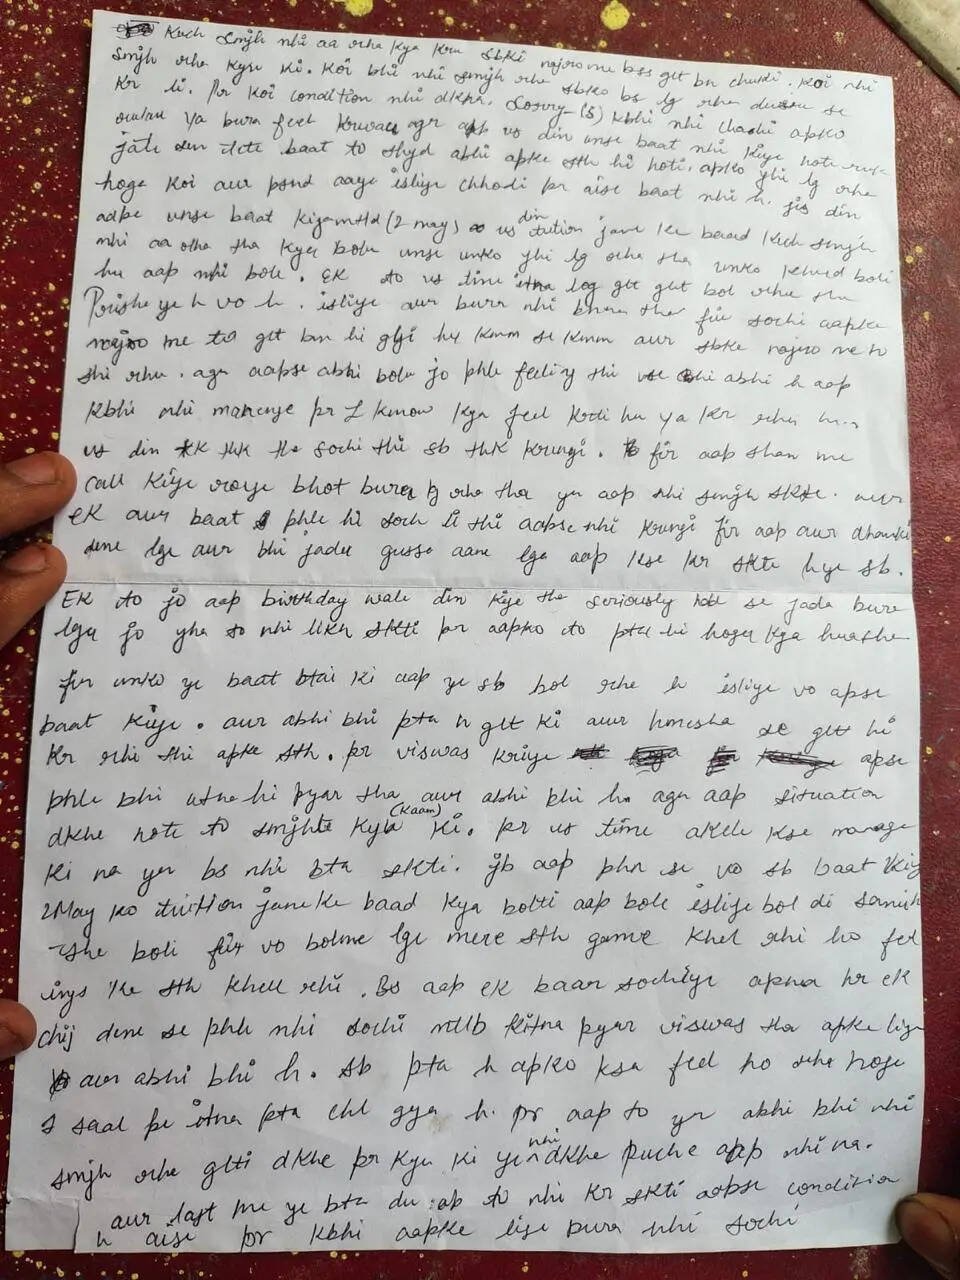 Kuch smjh nhi aa rha kya kru sbki najro me bss glt bn chuki. Koi nhi
smjh rha kyu ki. Koi bhi nhi smjh rhe sbko bs lg rha dusre se
kr li. Pr koi condition nhi dkha. Sorry kbhi nhi chachi apko
ya bura feel kruau agr aap vo din unse baat nhi kiye hote
jate den dete baat to shyd abhi apke sth hi hoti, apko yhi lg rha
hoga koi aur psnd aaye isliye chhodi pr aise baat nhi h. jis din
unse baat (2 may) us din tution jane ke baad kuch smjh
nhi aa rha tha kya bolu unse unko yhi lg rha tha unko khud boli
hu aap nhi bole. Ek to us time itna log glt glt bol rhe the
ye h vo h. isliye aur bura nhi the fir sochi aapke
najro me to glt bn hi gyi hu kmm se kmm aur sbke najro me to
shi rhu. agr aapse abhi bolu jo phle feeling thi vse hi abhi h aap
kbhi nhi manenge pr I know kya feel krti hu ya kr rhi hu..
us din thk the sochi thi sb thk krungi. fir aap sham me
call kiye roye bhot bura lg rha tha ye aap nhi smjh skte. aur
ek aur baat phle hi soch li thi aapse nhi krungi fir aap aur dhamki
dene lge aur bhi jada gussa aane lga aap kse kr skte hye sb.
Ek to jo aap birthday wale din kiye the seriously hdd se jada bura
lga jo yha to nhi likh skti pr aapko to pta hi hoga kya hua the
fir unko ye baat btai ki aap ye sb bol rhe h isliye vo apse
baat kiye. aur abhi bhi pta h glt ki aur hmesha se glt hi
kr rhi thi apke sth. pr viswas kriye apse
phle bhi utna hi pyar tha aur abhi bhi h agr aap situation
dkhe hote to smjhte kyu (kaam) ki. pr us time akele kse manage
ki na ye bs nhi bta skti. jb aap phn se vo sb baat kiy
2May ko tuition jane ke baad kya bolti aap bole isliye bol di
she boli fir vo bolne lge mere sth game khel rhi ho fel
ings ke sth khel rhi. Bs aap ek baar sochiye apna hr ek
chij dene se phle nhi sochi mtlb kitna pyar viswas tha apke liye
aur abhi bhi h. sb pta h apko ksa feel ho rha hoga
saal pe itna pta chl gya h. pr aap to ye abhi bhi nhi
smjh rhe glti dkhe pr kyu ki ye nhi dkhe puche aap nhi na.
aur last me ye bta du ab to nhi kr skti aapse condition
h aise pr kbhi aapke liye bura nhi sochi